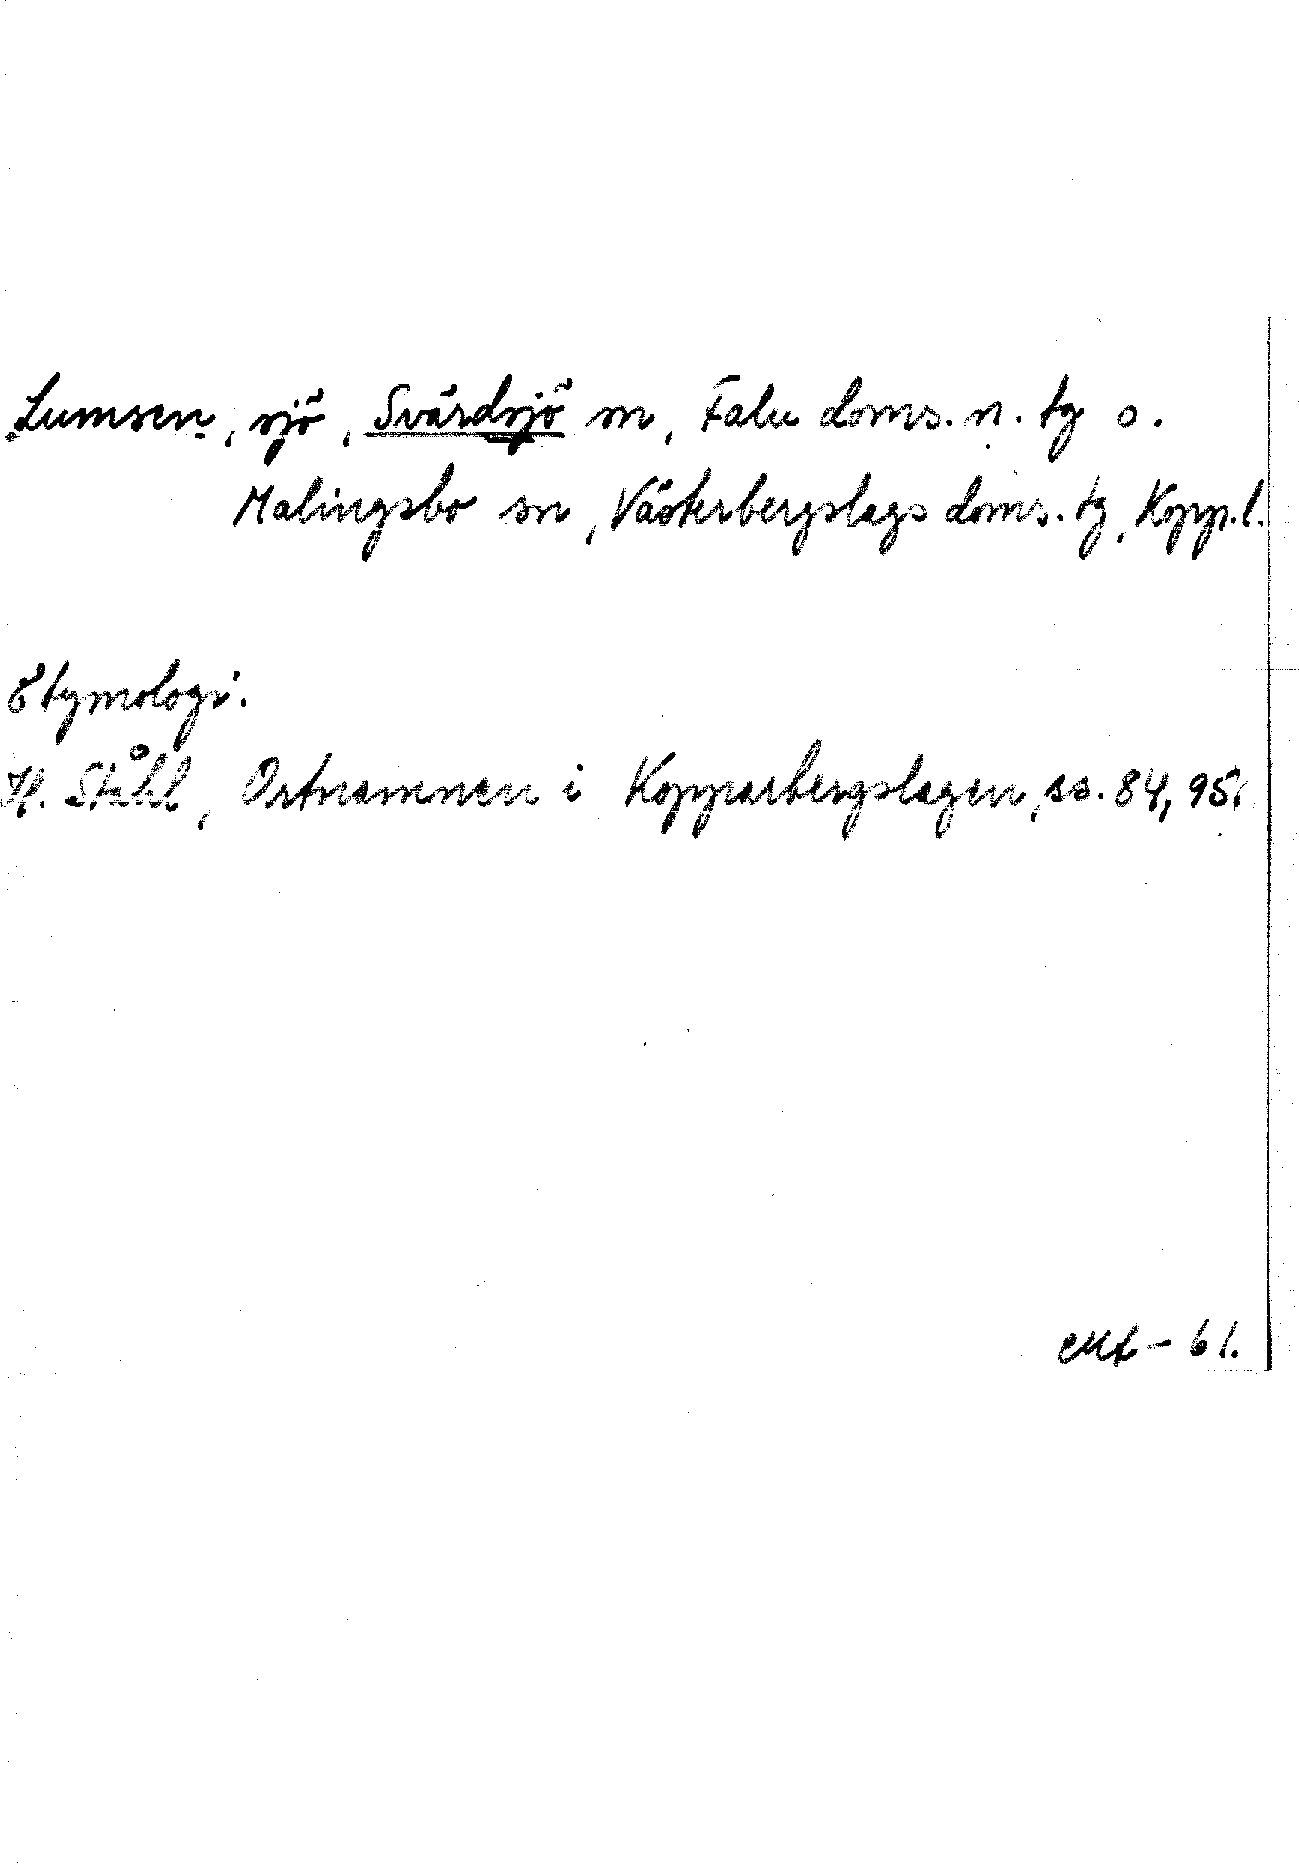 Lumsen, sjö, Svärdsjö sn, Falu doms. n. tg o.
Malingsbo sn, Västerbergslags doms. tg, Kopp.l.
Etymologi.
H. Ståhl, Ortnamnen i Kopparbergslagen, ss. 84, 95.
61.